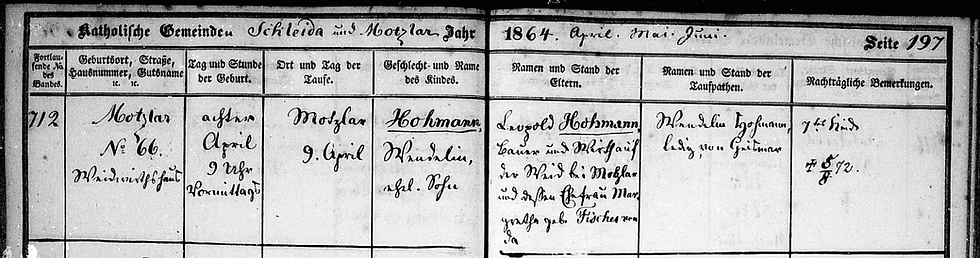 Katholische Gemeinden Schleida und Motzlar Jahr 1864. April. Mai. Juni. Seite 197
Fortlaufende No. des Bandes.
Geburtsort, Straße, Hausnummer, Gutsname ꝛc. ꝛc.
Tag und Stunde der Geburt.
Ort und Tag der Taufe.
Geschlecht und Name des Kindes.
Namen und Stand der Eltern.
Namen und Stand der Taufpathen.
Nachträgliche Bemerkungen.
712
Motzlar
No 66.
Weidwirthshaus
achter
April
9 Uhr
Vormittags
Motzlar
9. April
Hohmann,
Wendelin,
ehel. Sohn
Leopold Hohmann,
Bauer und Wirth auf
der Weid bei Motzlar
und dessen Ehefrau Mar
gretha geb. Fischer von
da
Wendelin Hohmann,
ledig, von Geismar
7tes Kind
† 5/8 72.